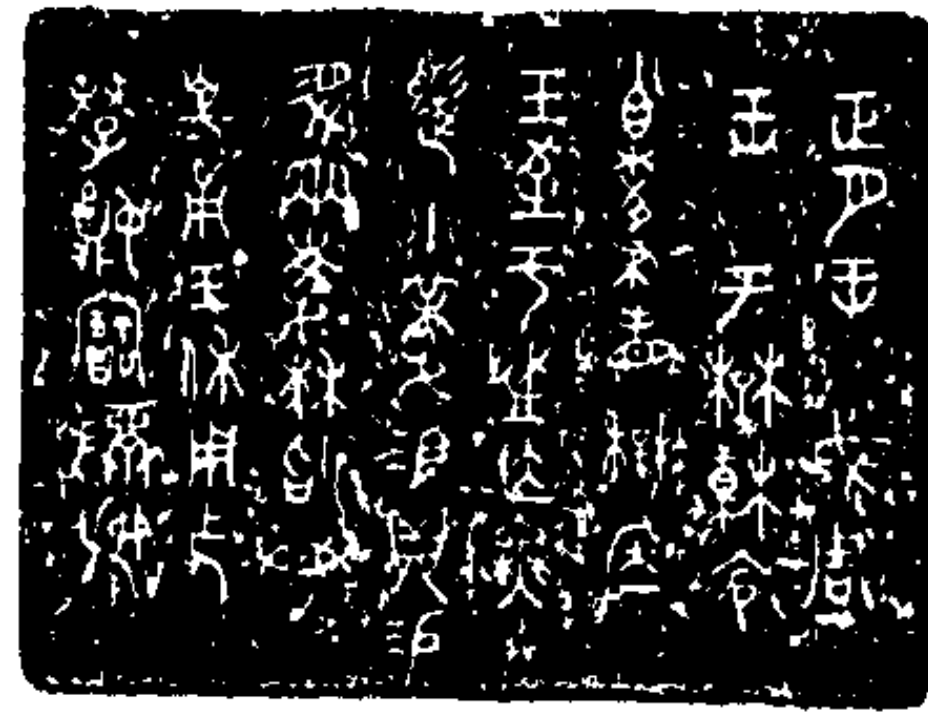 正月王在成周
王徙于楚麓令
小臣夌先省楚
王至于徙无遣
小臣夌易貝易
馬兩夌拜𩒨首
對揚王休用乍
季嬭寶尊彝